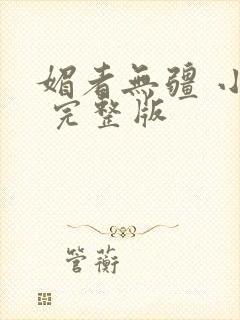 媚者無疆 小
完整版
管蘅